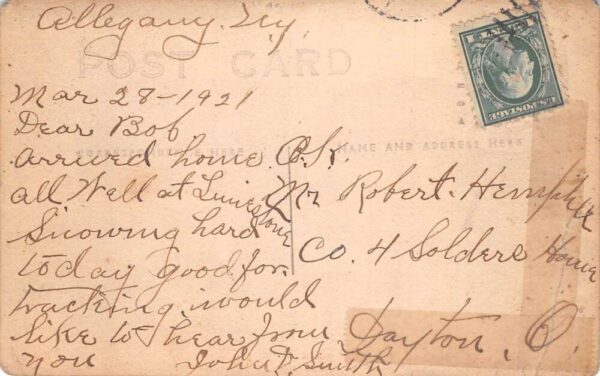 Allegany. N.Y.
POST CARD
Mar 28-1921
Dear Bob
CORRESPONDENCE HERE
NAME AND ADDRESS HERE
arrived home O.K.
all Well at Limestone
Snowing hard
today good for
tracking would
like to hear from
you John P. Smith
Mr Robert. Hemphill
Co. 4 Solders Home
Dayton, O.
U.S. POSTAGE
1 CENT 1